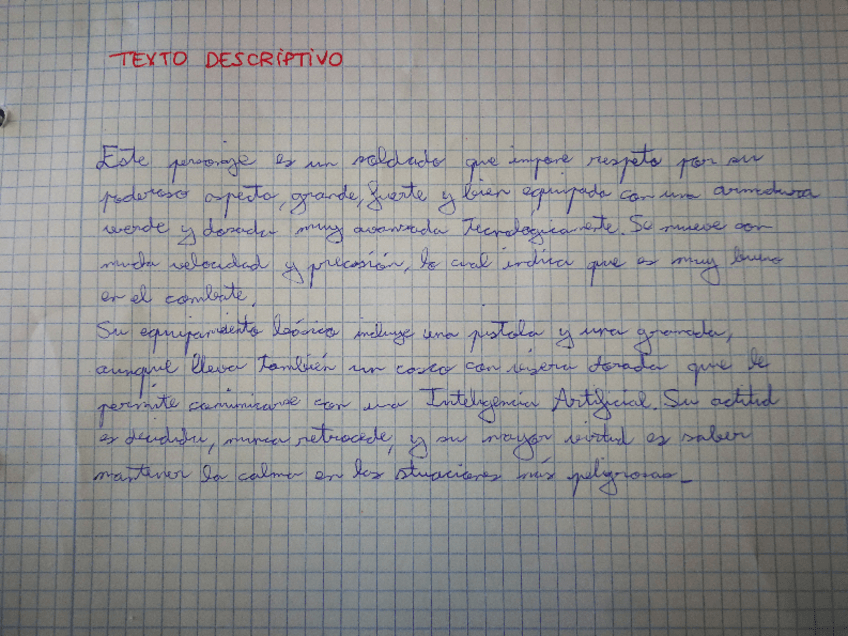 TEXTO DESCRIPTIVO
Este personaje es un soldado que impone respeto por su
poderoso aspecto, grande, fuerte y bien equipado con una armadura
verde y dorada muy avanzada tecnológicamente. Se mueve con
mucha velocidad y precisión, lo cual indica que es muy bueno
en el combate.
Su equipamiento básico incluye una pistola y una granada,
aunque lleva también un casco con visera dorada que le
permite comunicarse con una Inteligencia Artificial. Su actitud
es decidida, nunca retrocede, y su mayor virtud es saber
mantener la calma en las situaciones más peligrosas_